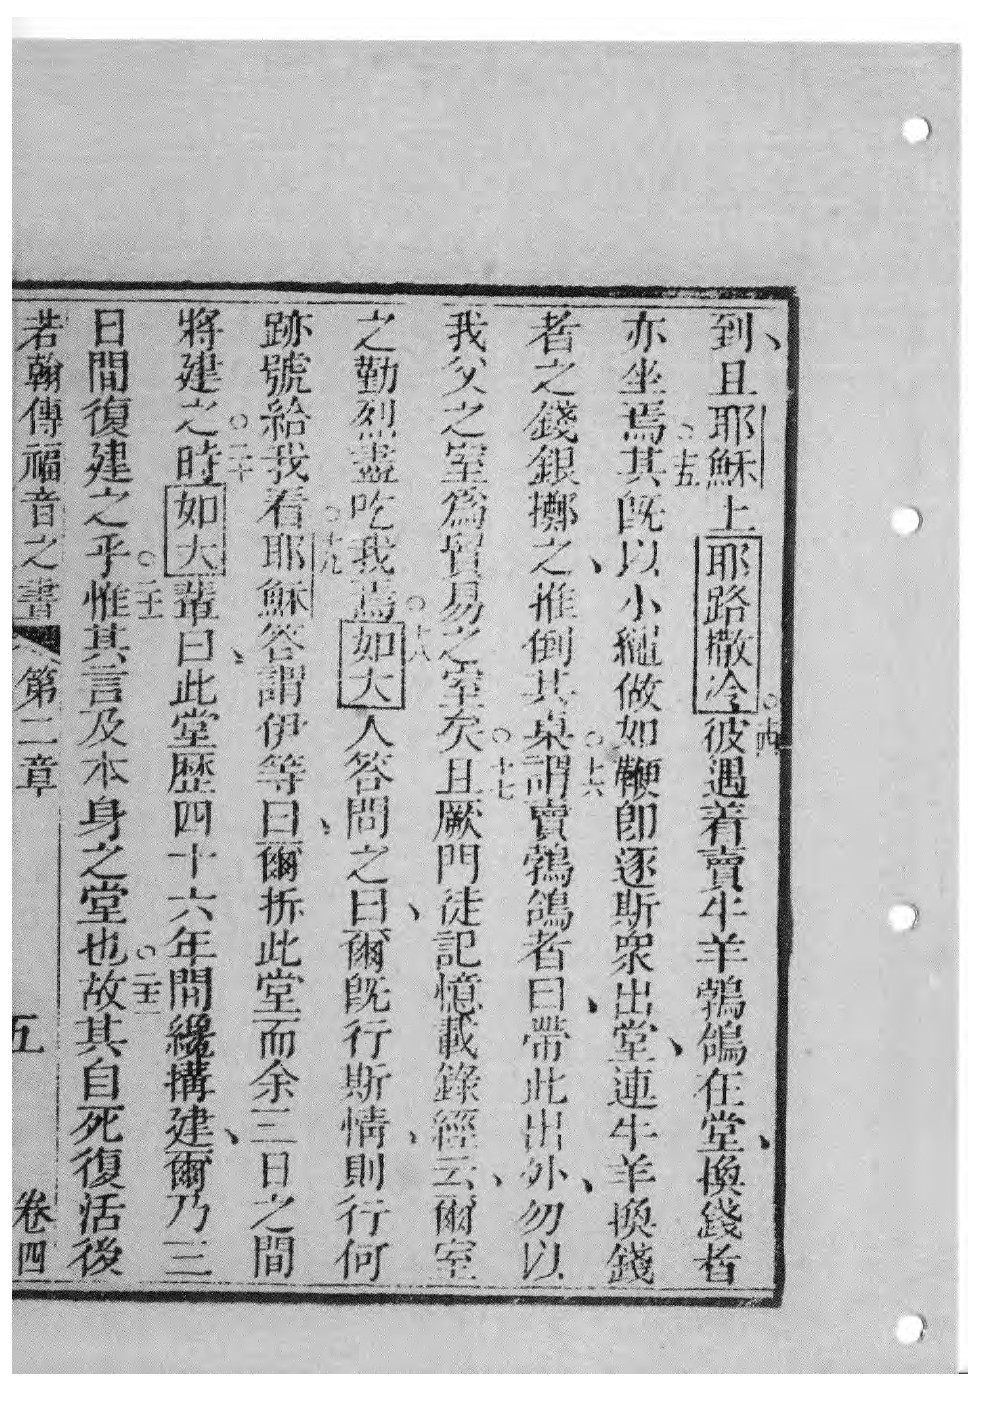 到且耶穌上耶路撒冷○十四彼遇着賣牛羊鵓鴿在堂、換錢者
亦坐焉○十五其既以小繩做如鞭卽逐斯衆出堂、連牛羊換錢
者之錢銀擲之、推倒其桌○十六謂賣鵓鴿者曰、帶此出外、勿以
我父之室爲貿易之室矣○十七且厥門徒記憶載錄經云、爾室
之勤烈盡吃我焉○十八如大人答問之曰、爾既行斯情、則行何
跡號給我看○十九耶穌答謂伊等曰、爾拆此堂而余三日之間
將建之○二十時如大輩曰、此堂歷四十六年間纔搆建、爾乃三
日間復建之乎○二十一惟其言及本身之堂也○二十二故其自死復活後
若翰傳福音之書 第二章 五 卷四